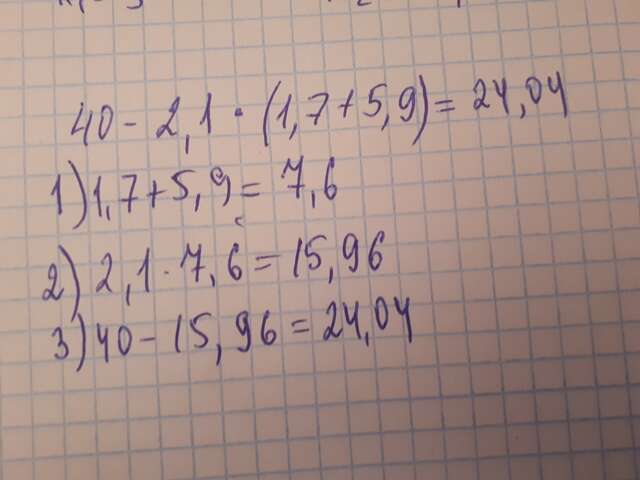 40 - 2,1 · (1,7 + 5,9) = 24,04
1) 1,7 + 5,9 = 7,6
2) 2,1 · 7,6 = 15,96
3) 40 - 15,96 = 24,04